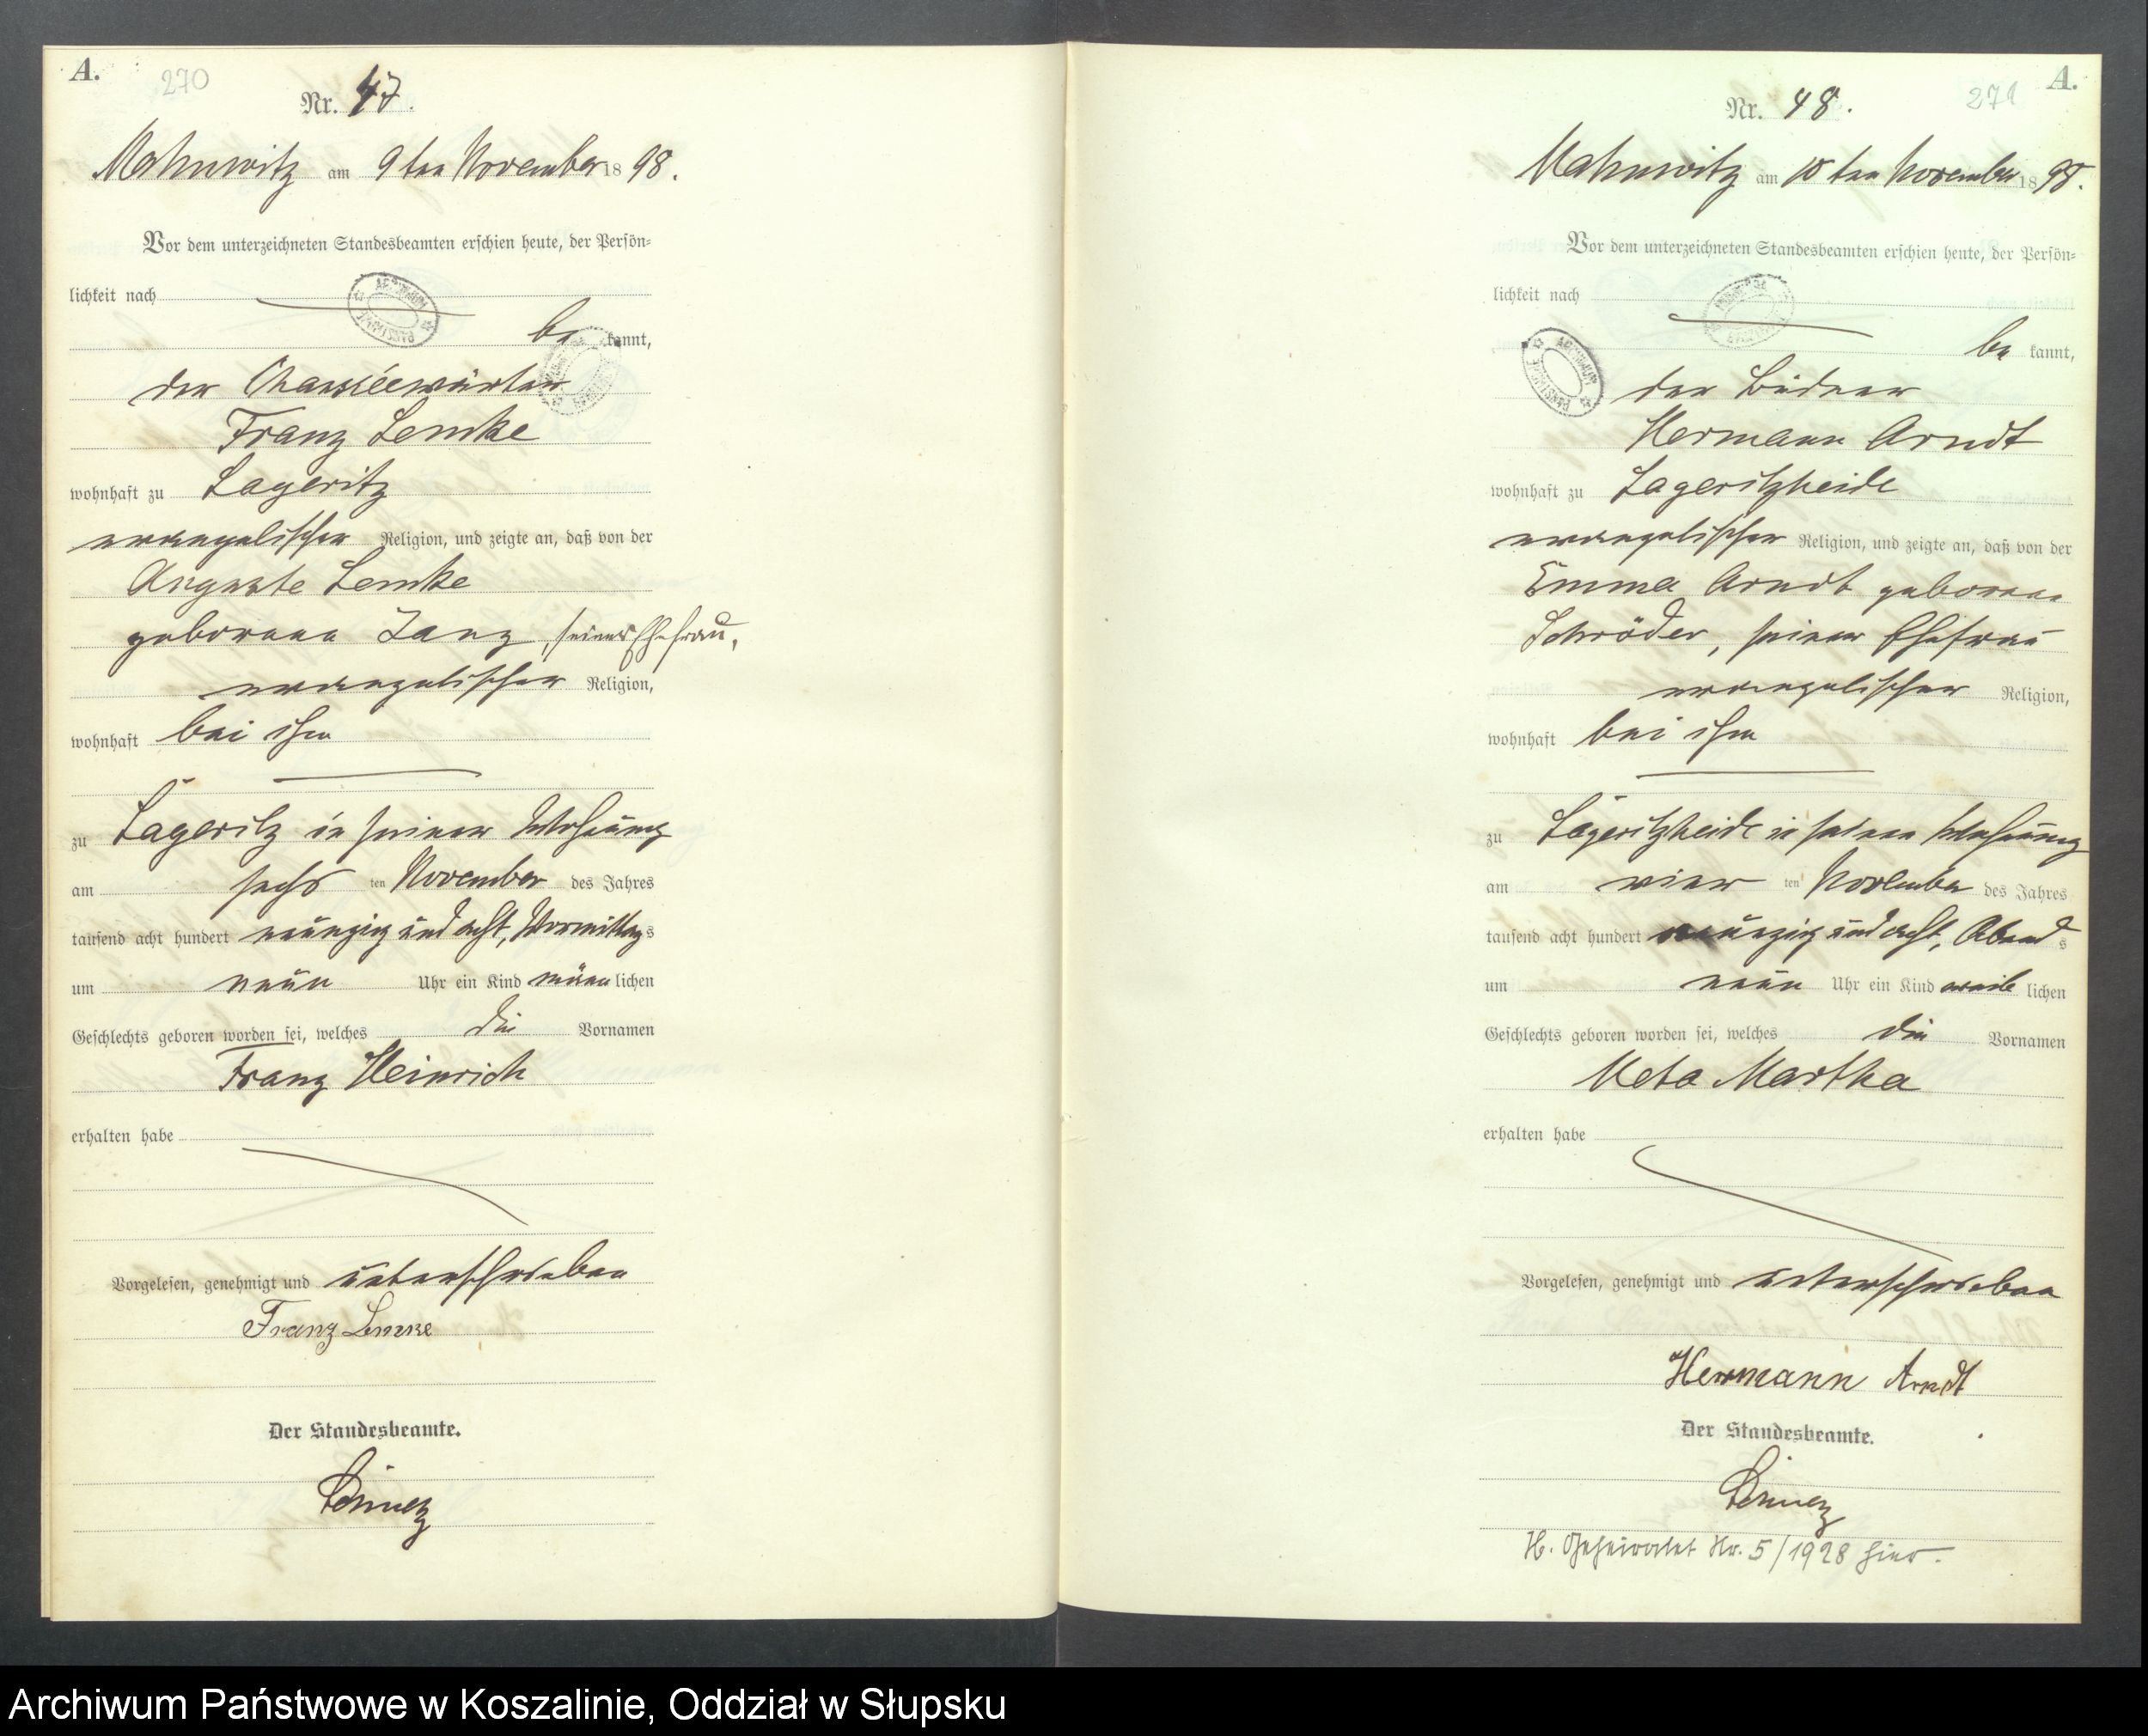 A.
270
Nr. 47.
Mahnwitz am 9ten November 1898.
Vor dem unterzeichneten Standesbeamten erschien heute, der Persön-
lichkeit nach
be kannt,
der Chausséewärter
Franz Lemke
wohnhaft zu Lageritz
evangelischer Religion, und zeigte an, daß von der
Auguste Lemke
geborenen Janz, seiner Ehefrau,
evangelischer Religion,
wohnhaft bei ihm
zu Lageritz in seiner Wohnung
am sechs ten November des Jahres
tausend acht hundert neunzig und acht, Vormittags
um neun Uhr ein Kind männlichen
Geschlechts geboren worden sei, welches die Vornamen
Franz Heinrich
erhalten habe
Vorgelesen, genehmigt und unterschrieben
Franz Lemke
Der Standesbeamte.
A.
271
Nr. 48.
Mahnwitz am 10ten November 1898.
Vor dem unterzeichneten Standesbeamten erschien heute, der Persön-
lichkeit nach
be kannt,
der Büdner
Hermann Arndt
wohnhaft zu Lageritzheide
evangelischer Religion, und zeigte an, daß von der
Emma Arndt geborene
Schröder, seiner Ehefrau
evangelischer Religion,
wohnhaft bei ihm
zu Lageritzheide in seiner Wohnung
am vier ten November des Jahres
tausend acht hundert neunzig und acht, Abends
um neun Uhr ein Kind weiblichen
Geschlechts geboren worden sei, welches die Vornamen
Meta Martha
erhalten habe
Vorgelesen, genehmigt und unterschrieben
Herrmann Arndt
Der Standesbeamte.
H. Geheiratet Nr. 5/1928 hier.
Archiwum Państwowe w Koszalinie, Oddział w Słupsku